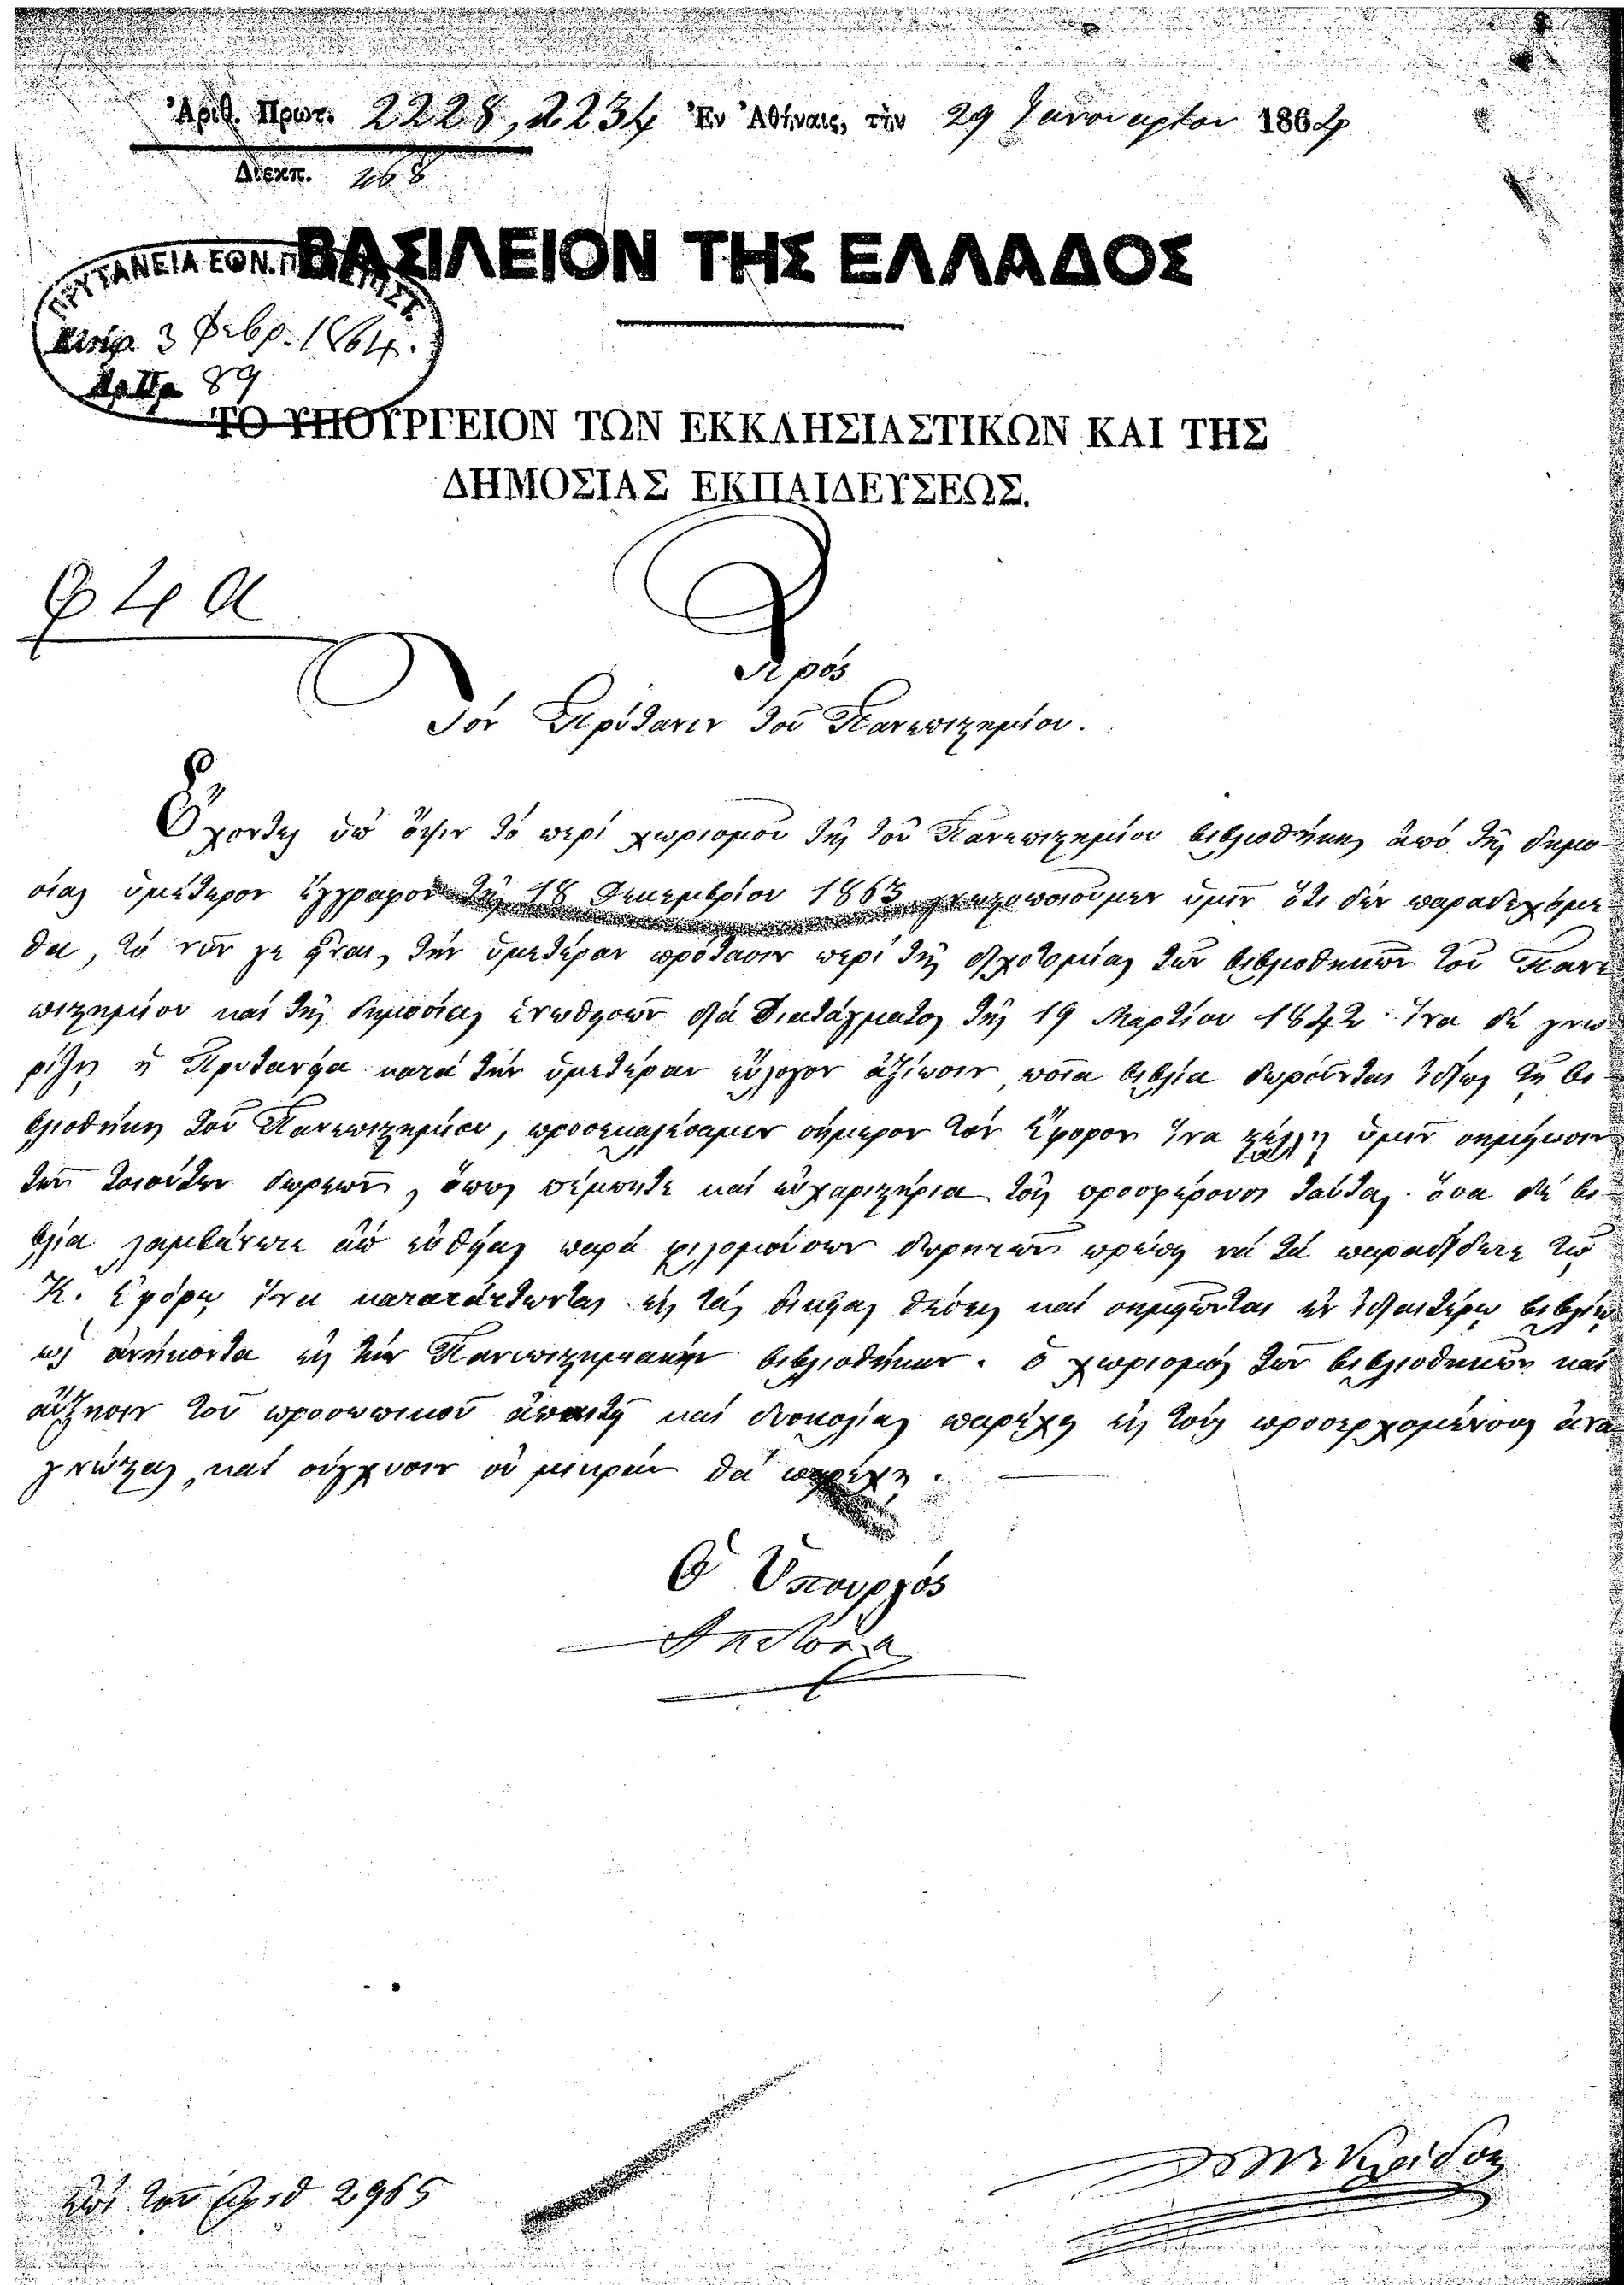 Ἀριθ. Πρωτ. 2228, 2234 Ἐν Ἀθήναις, τὴν 29 Ἰανουαρίου 1864
Διεκπ. 468
ΒΑΣΙΛΕΙΟΝ ΤΗΣ ΕΛΛΑΔΟΣ
ΠΡΥΤΑΝΕΙΑ ΕΘΝ.
3 Φεβρ. 1864.
Αρ Πρ 89
ΤΟ ΥΠΟΥΡΓΕΙΟΝ ΤΩΝ ΕΚΚΛΗΣΙΑΣΤΙΚΩΝ ΚΑΙ ΤΗΣ
ΔΗΜΟΣΙΑΣ ΕΚΠΑΙΔΕΥΣΕΩΣ.
Πρός
Τόν Πρύτανιν τοῦ Πανεπιστημίου.
Ἔχοντες ὑπ' ὄψιν τό περί χωρισμοῦ τῆς τοῦ Πανεπιστημίου βιβλιοθήκης ἀπό τῆς δημο-
σίας ὑμέτερον ἔγγραφον τῆς 18 Δεκεμβρίου 1863 γνωστοποιοῦμεν ὑμῖν ὅτι δέν παραδεχόμε
θα, τό νῦν γε εἶναι, τήν ὑμετέραν πρότασιν περί τῆς διχοτομίας τῶν βιβλιοθηκῶν τοῦ Πανε
πιστημίου καί τῆς δημοσίας ἑνωθεισῶν διά Διατάγματος τῆς 19 Μαρτίου 1842· ἵνα δέ γνω
ρίζῃ ἡ Πρυτανεία κατά τήν ὑμετέραν εὔλογον ἀξίωσιν, ποῖα βιβλία δωροῦνται ἰδίως τῇ βι-
βλιοθήκῃ τοῦ Πανεπιστημίου, προσεκαλέσαμεν σήμερον τόν Ἔφορον ἵνα στέλλῃ ὑμῖν σημείωσιν
τῶν τοιούτων δωρεῶν, ὅπως πέμπητε καί εὐχαριστήρια τοῖς προσφέρουσι ταύτας· ὅσα δέ βι-
βλία λαμβάνετε ἀπ' εὐθείας παρά φιλομούσων δωρητῶν πρέπει νά τά παραδίδετε τῷ
Κ. Ἐφόρῳ ἵνα κατατάττωνται εἰς τάς οἰκείας θέσεις καί σημειῶνται ἐν ἰδιαιτέρῳ βιβλίῳ
ὡς ἀνήκοντα εἰς τήν Πανεπιστημιακήν βιβλιοθήκην. ὁ χωρισμός τῶν βιβλιοθηκῶν καί
αὔξησιν τοῦ προσωπικοῦ ἀπαιτεῖ καί δυσκολίας παρέχει εἰς τούς προσερχομένους ἀνα
γνώστας, καί σύγχυσιν οὐ μικράν θά παρέχῃ.
Ὁ Ὑπουργός
ἀριθ 2965